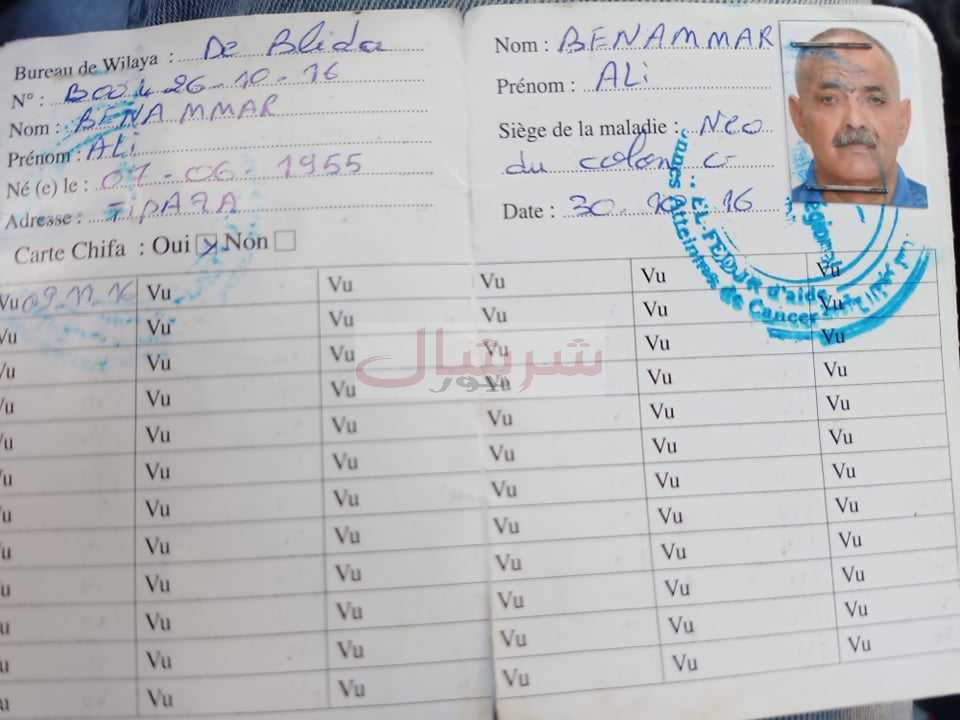 Bureau de Wilaya : De Blida
N° : B004 26-10-16
Nom : BENAMMAR
Prénom : ALi
Né (e) le : 07-06-1955
Adresse : TIPAZA
Carte Chifa : Oui Non
Nom : BENAMMAR
Prénom : ALi
Siège de la maladie : Neo
du colon G
Date : 30-10-16
EL-FEDJR d'aide
Atteintes de Cancer
شرشال
نيوز
Vu 09.11.16 Vu Vu Vu Vu Vu
Vu Vu Vu Vu Vu Vu
Vu Vu Vu Vu Vu Vu
Vu Vu Vu Vu Vu Vu
Vu Vu Vu Vu Vu Vu
Vu Vu Vu Vu Vu Vu
Vu Vu Vu Vu Vu Vu
Vu Vu Vu Vu Vu Vu
Vu Vu Vu Vu Vu Vu
Vu Vu Vu Vu Vu Vu
Vu Vu Vu Vu Vu Vu
Vu Vu Vu Vu Vu Vu